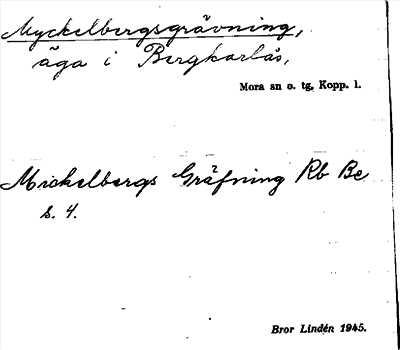 Myckelbergsgrävning,
äga i Bergkarlås,
Mora sn o. tg. Kopp. l.
Mickelbergs Gräfning Rb Be
s. 4.
Bror Lindén 1945.